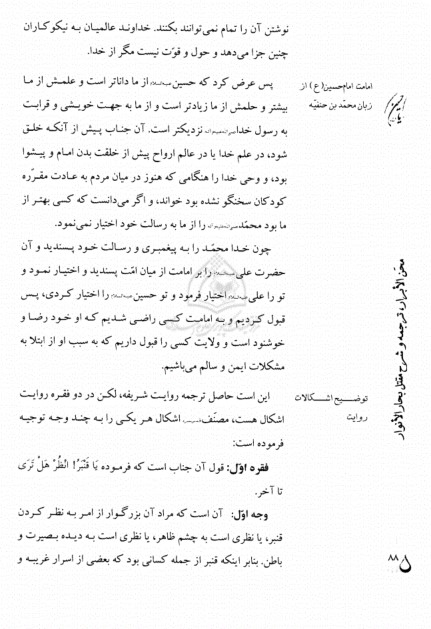 نوشتن آن را تمام نمی‌توانند بکنند. خداوند عالمیان به نیکوکاران
چنین جزا می‌دهد و حول و قوّت نیست مگر از خدا.
امامت امام حسین (ع) از
زبان محمّد بن حنفیّه
پس عرض کرد که حسین از ما داناتر است و علمش از ما
بیشتر و حلمش از ما زیادتر است و از ما به جهت خویشی و قرابت
به رسول خدا نزدیکتر است. آن جناب پیش از آنکه خلق
شود، در علم خدا یا در عالم ارواح پیش از خلقت بدن امام و پیشوا
بود، و وحی خدا را هنگامی که هنوز در میان مردم به عادت مقرّره
کودکان سخنگو نشده بود خواند، و اگر می‌دانست که کسی بهتر از
ما بود محمّد را از ما به رسالت خود اختیار نمی‌نمود.
چون خدا محمّد را به پیغمبری و رسالت خود پسندید و آن
حضرت علی را بر امامت از میان امّت پسندید و اختیار نمود و
تو را علی اختیار فرمود و تو حسین را اختیار کردی، پس
قبول کردیم و به امامت کسی راضی شدیم که او خود رضا و
خوشنود است و ولایت کسی را قبول داریم که به سبب او از ابتلا به
مشکلات ایمن و سالم می‌باشیم.
توضیح اشکالات
روایت
این است حاصل ترجمه روایت شریفه، لکن در دو فقره روایت
اشکال هست، مصنّف اشکال هر یکی را به چند وجه توجیه
فرموده است:
فقره اوّل: قول آن جناب است که فرموده یَا قَنْبَرُ! انْظُرْ هَلْ تَرَی
تا آخر.
وجه اوّل: آن است که مراد آن بزرگوار از امر به نظر کردن
قنبر، یا نظری است به چشم ظاهر، یا نظری است به دیده بصیرت و
باطن. بنابر اینکه قنبر از جمله کسانی بود که بعضی از اسرار غریبه و
محن الأبرار، ترجمه و شرح مقتل بحار الأنوار
۸۸